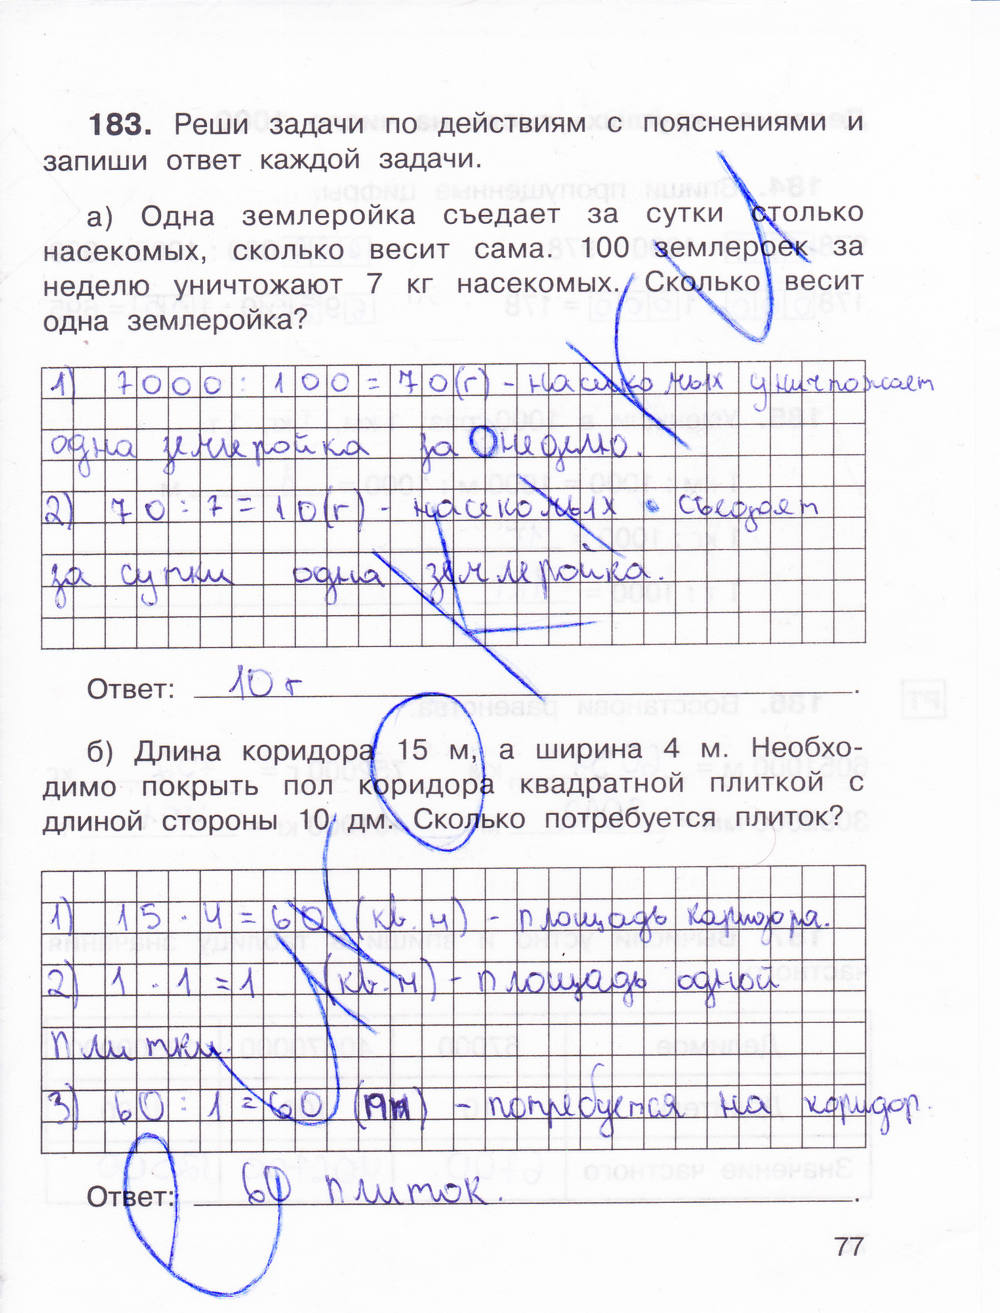 183. Реши задачи по действиям с пояснениями и
запиши ответ каждой задачи.
а) Одна землеройка съедает за сутки столько
насекомых, сколько весит сама. 100 землероек за
неделю уничтожают 7 кг насекомых. Сколько весит
одна землеройка?
1) 7000 : 100 = 70(г) - насекомых уничтожает
одна землеройка за неделю.
2) 70 : 7 = 10(г) - насекомых съедает
за сутки одна землеройка.
Ответ: 10 г.
б) Длина коридора 15 м, а ширина 4 м. Необхо-
димо покрыть пол коридора квадратной плиткой с
длиной стороны 10 дм. Сколько потребуется плиток?
1) 15 · 4 = 60 (кв. м) - площадь коридора.
2) 1 · 1 = 1 (кв. м) - площадь одной
плитки.
3) 60 : 1 = 60 - потребуется на коридор.
Ответ: 60 плиток.
77